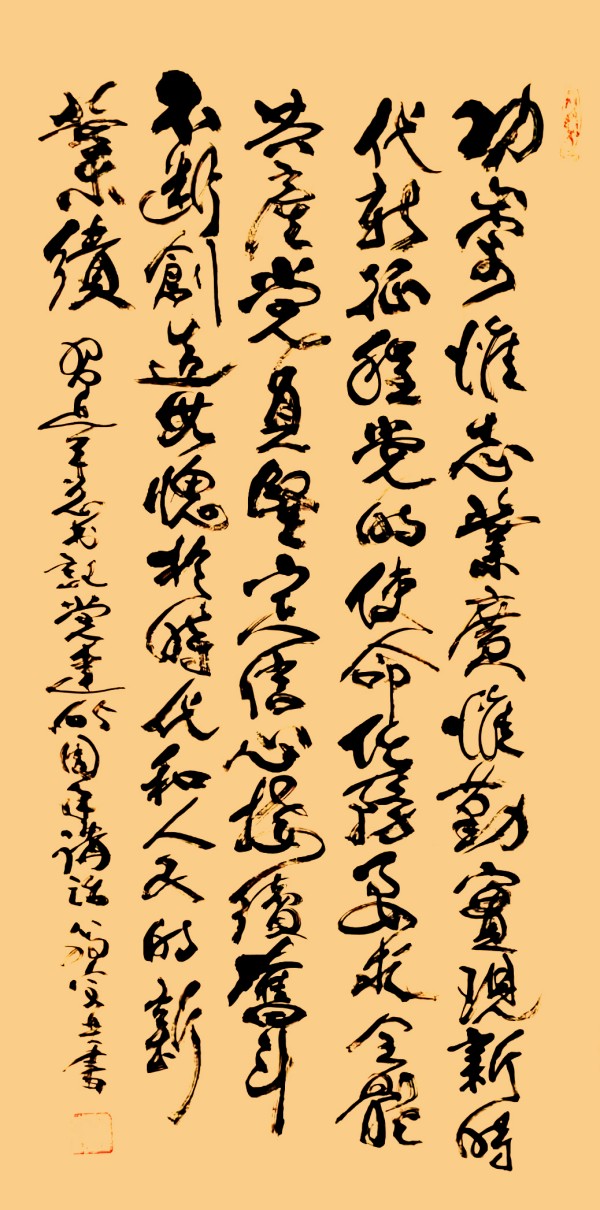 功崇惟志業廣惟勤實現新時
代新征程党的使命任務要求全體
共産党員堅定信心接續奮斗
不断創造無愧於時代和人民的新
業績
習近平总书記党建周年講話書